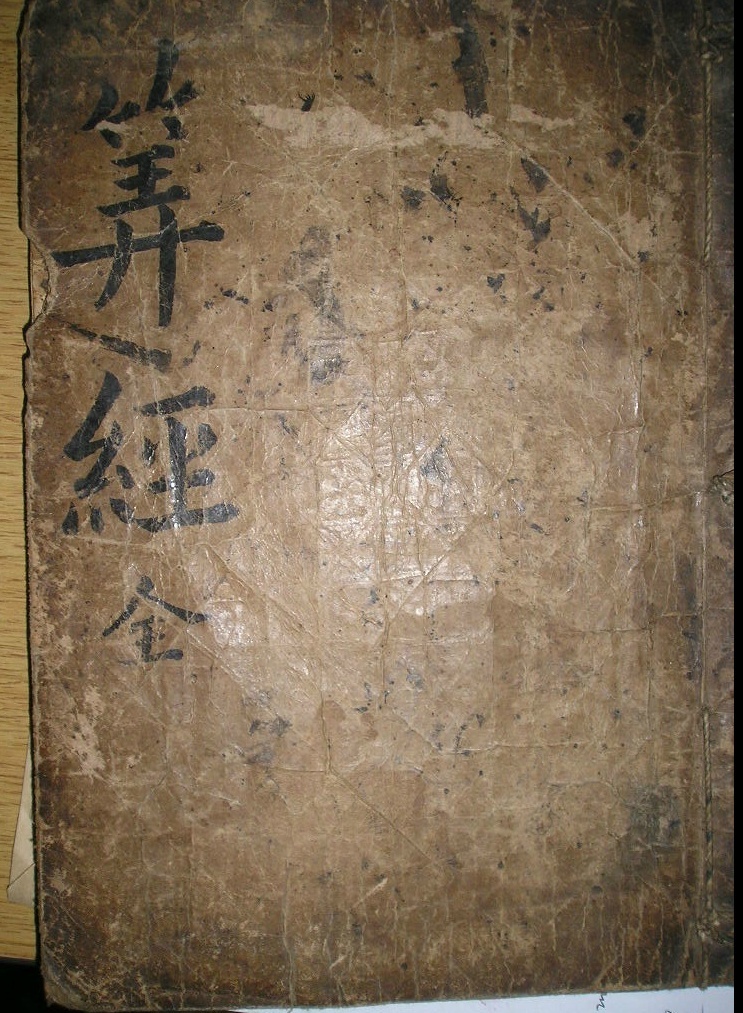 筭經 全